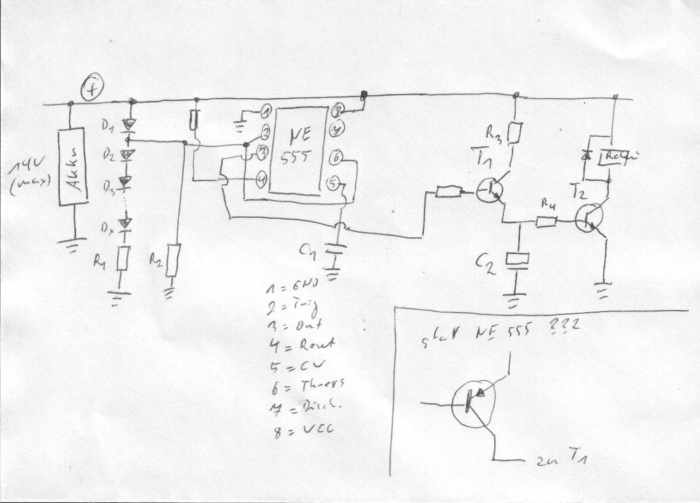 +
D1
D2
D3
Dx
14V
(max)
Akku
R1
R2
1
2
3
4
NE
555
8
7
6
5
C1
R3
T1
R4
T2
Relais
C2
1 = GND
2 = Trig
3 = Out
4 = Reset
5 = CV
6 = Thres
7 = Disch.
8 = VCC
statt NE 555 ???
zu T1